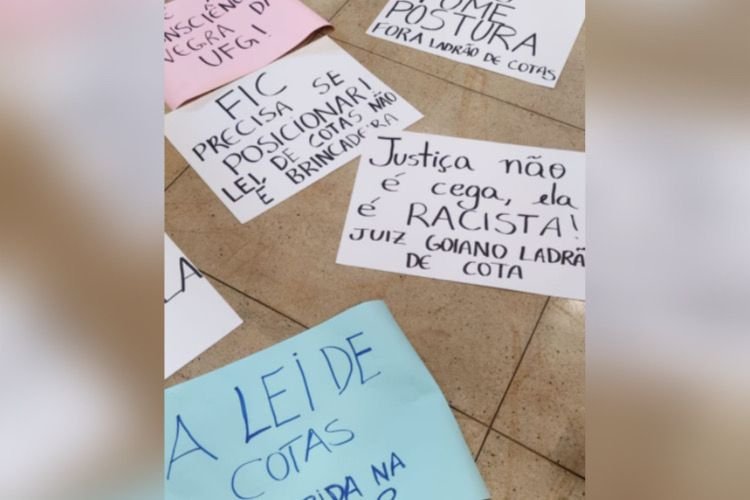 NSCIÊN
NEGRA DA
UFG!
TOME
POSTURA
FORA LADRÃO DE COTAS
FIC
PRECISA SE
POSICIONAR!
LEI DE COTAS NÃO
É BRINCADEIRA
Justiça não
é cega, ela
é RACISTA!
JUIZ GOIANO LADRÃ
DE COTA
LA
A LEI DE
COTAS
RIDA NA